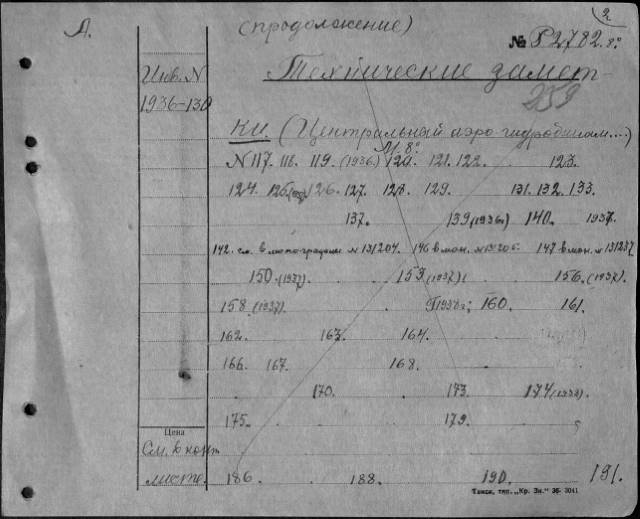 2
Д. (продолжение)
№ P2782.8º
Инв. N Технические замет-
1936-130 259
ки. (Центральный аэро-гидродинам....)
М. 8º
N 117. 118. 119. (1936) 120. 121. 122. 123.
124. 125 126. 127. 128. 129. 131. 132. 133.
137. 139 (1936г) 140. 1937.
142. см. в монографии № 131204. 146 в мон. № 147 в мон. № 131237
150 (1937) 153 (1937) 156. (1937).
158. (1937). 1938г; 160. 161.
162. 163. 164.
166. 167. 168.
170. 173. 174 (1938)
175. 179.
Цена
См. в конт
листе. 186. 188. 190. 191.
Тамов, тип. „Кр. Зн." 36- 3041